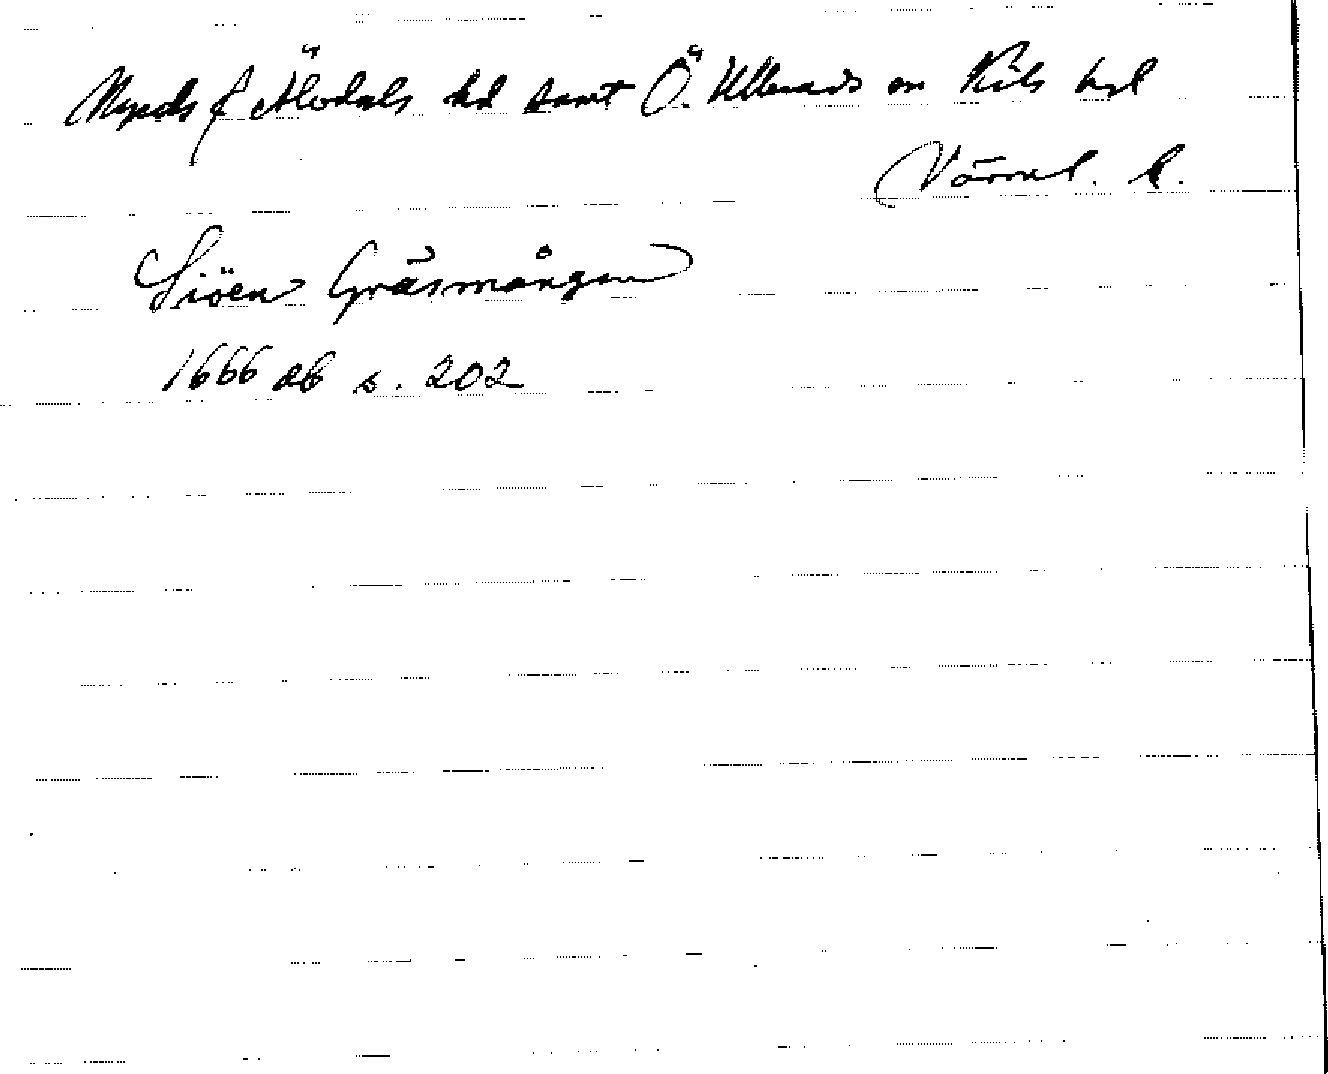 Nyeds f Älvdals hd samt Ö. Ullerud on Kils hd
Värml. l.
Siöen Gräsmången
1666 db s. 202